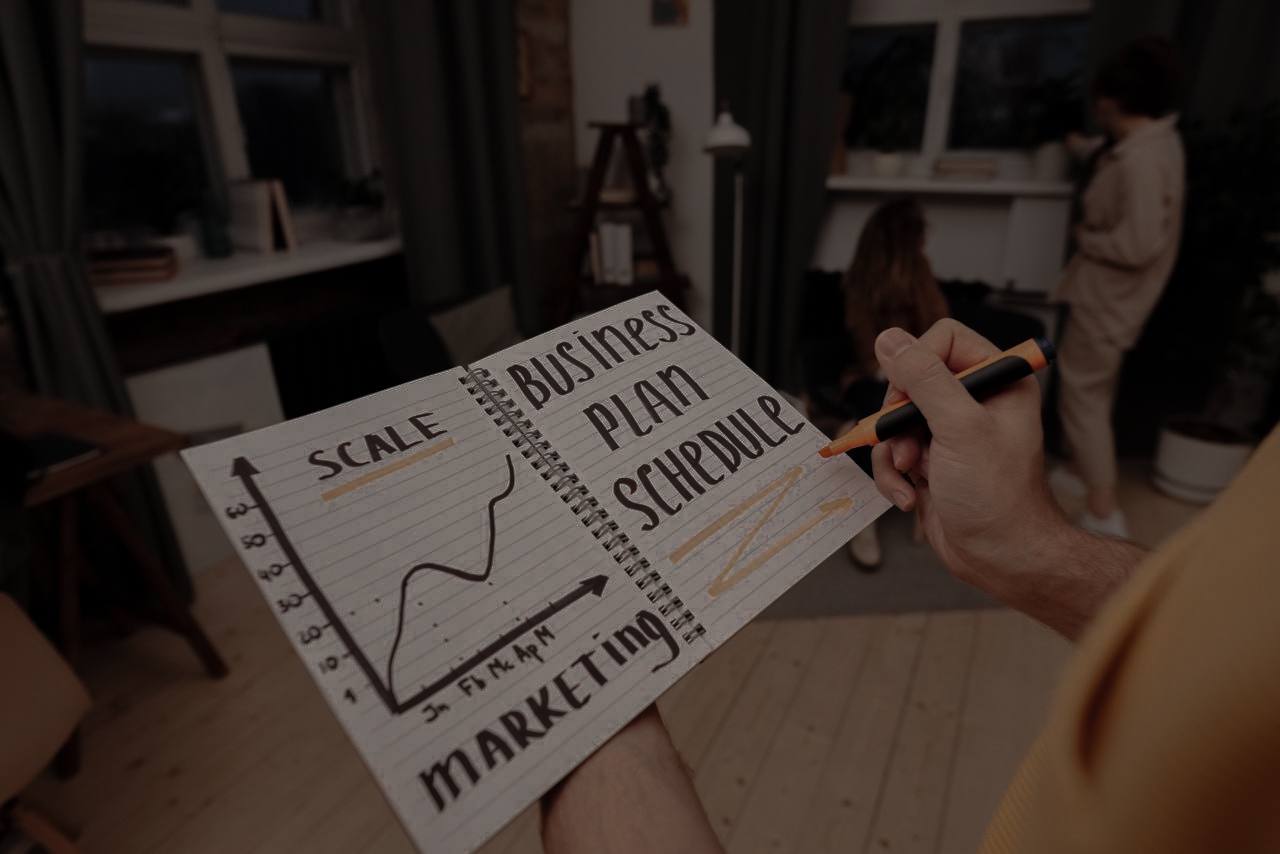 SCALE
60
50
40
30
20
10
1
Jn Fb Mc Ap M
MARKETing
BUSiness
PLAN
SCHEDULE